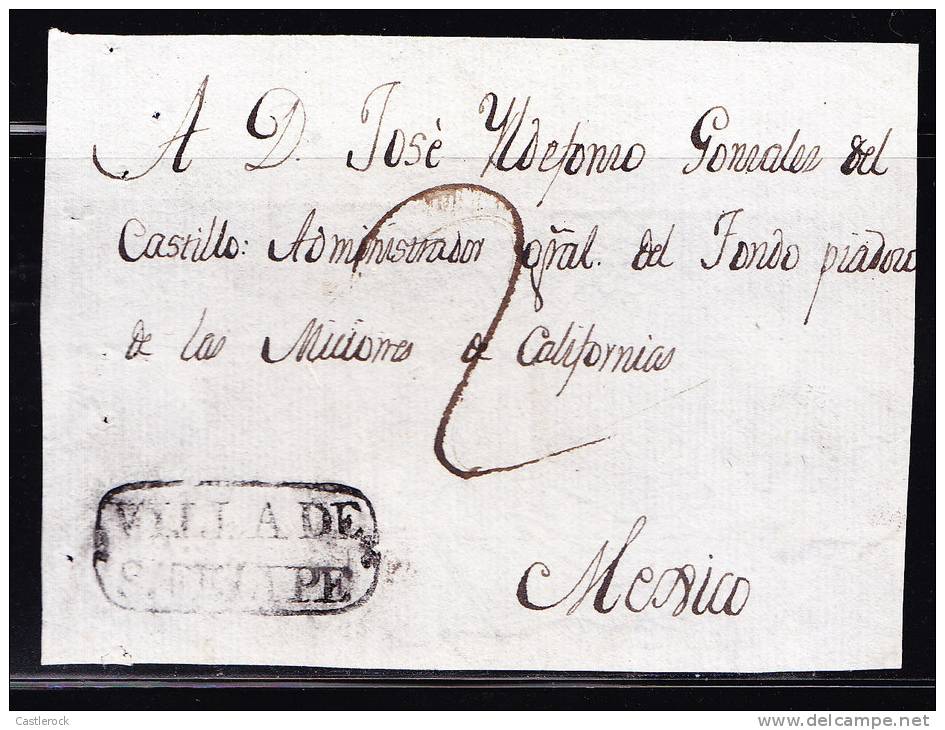 A D. José Yldefonso Gonzales del
Castillo: Administrador gr̃al. del Fondo piadoso
de las Miciones de Californias
2
VILLA DE
S. FELIPE
Mexico
Castlerock
delcampe.net